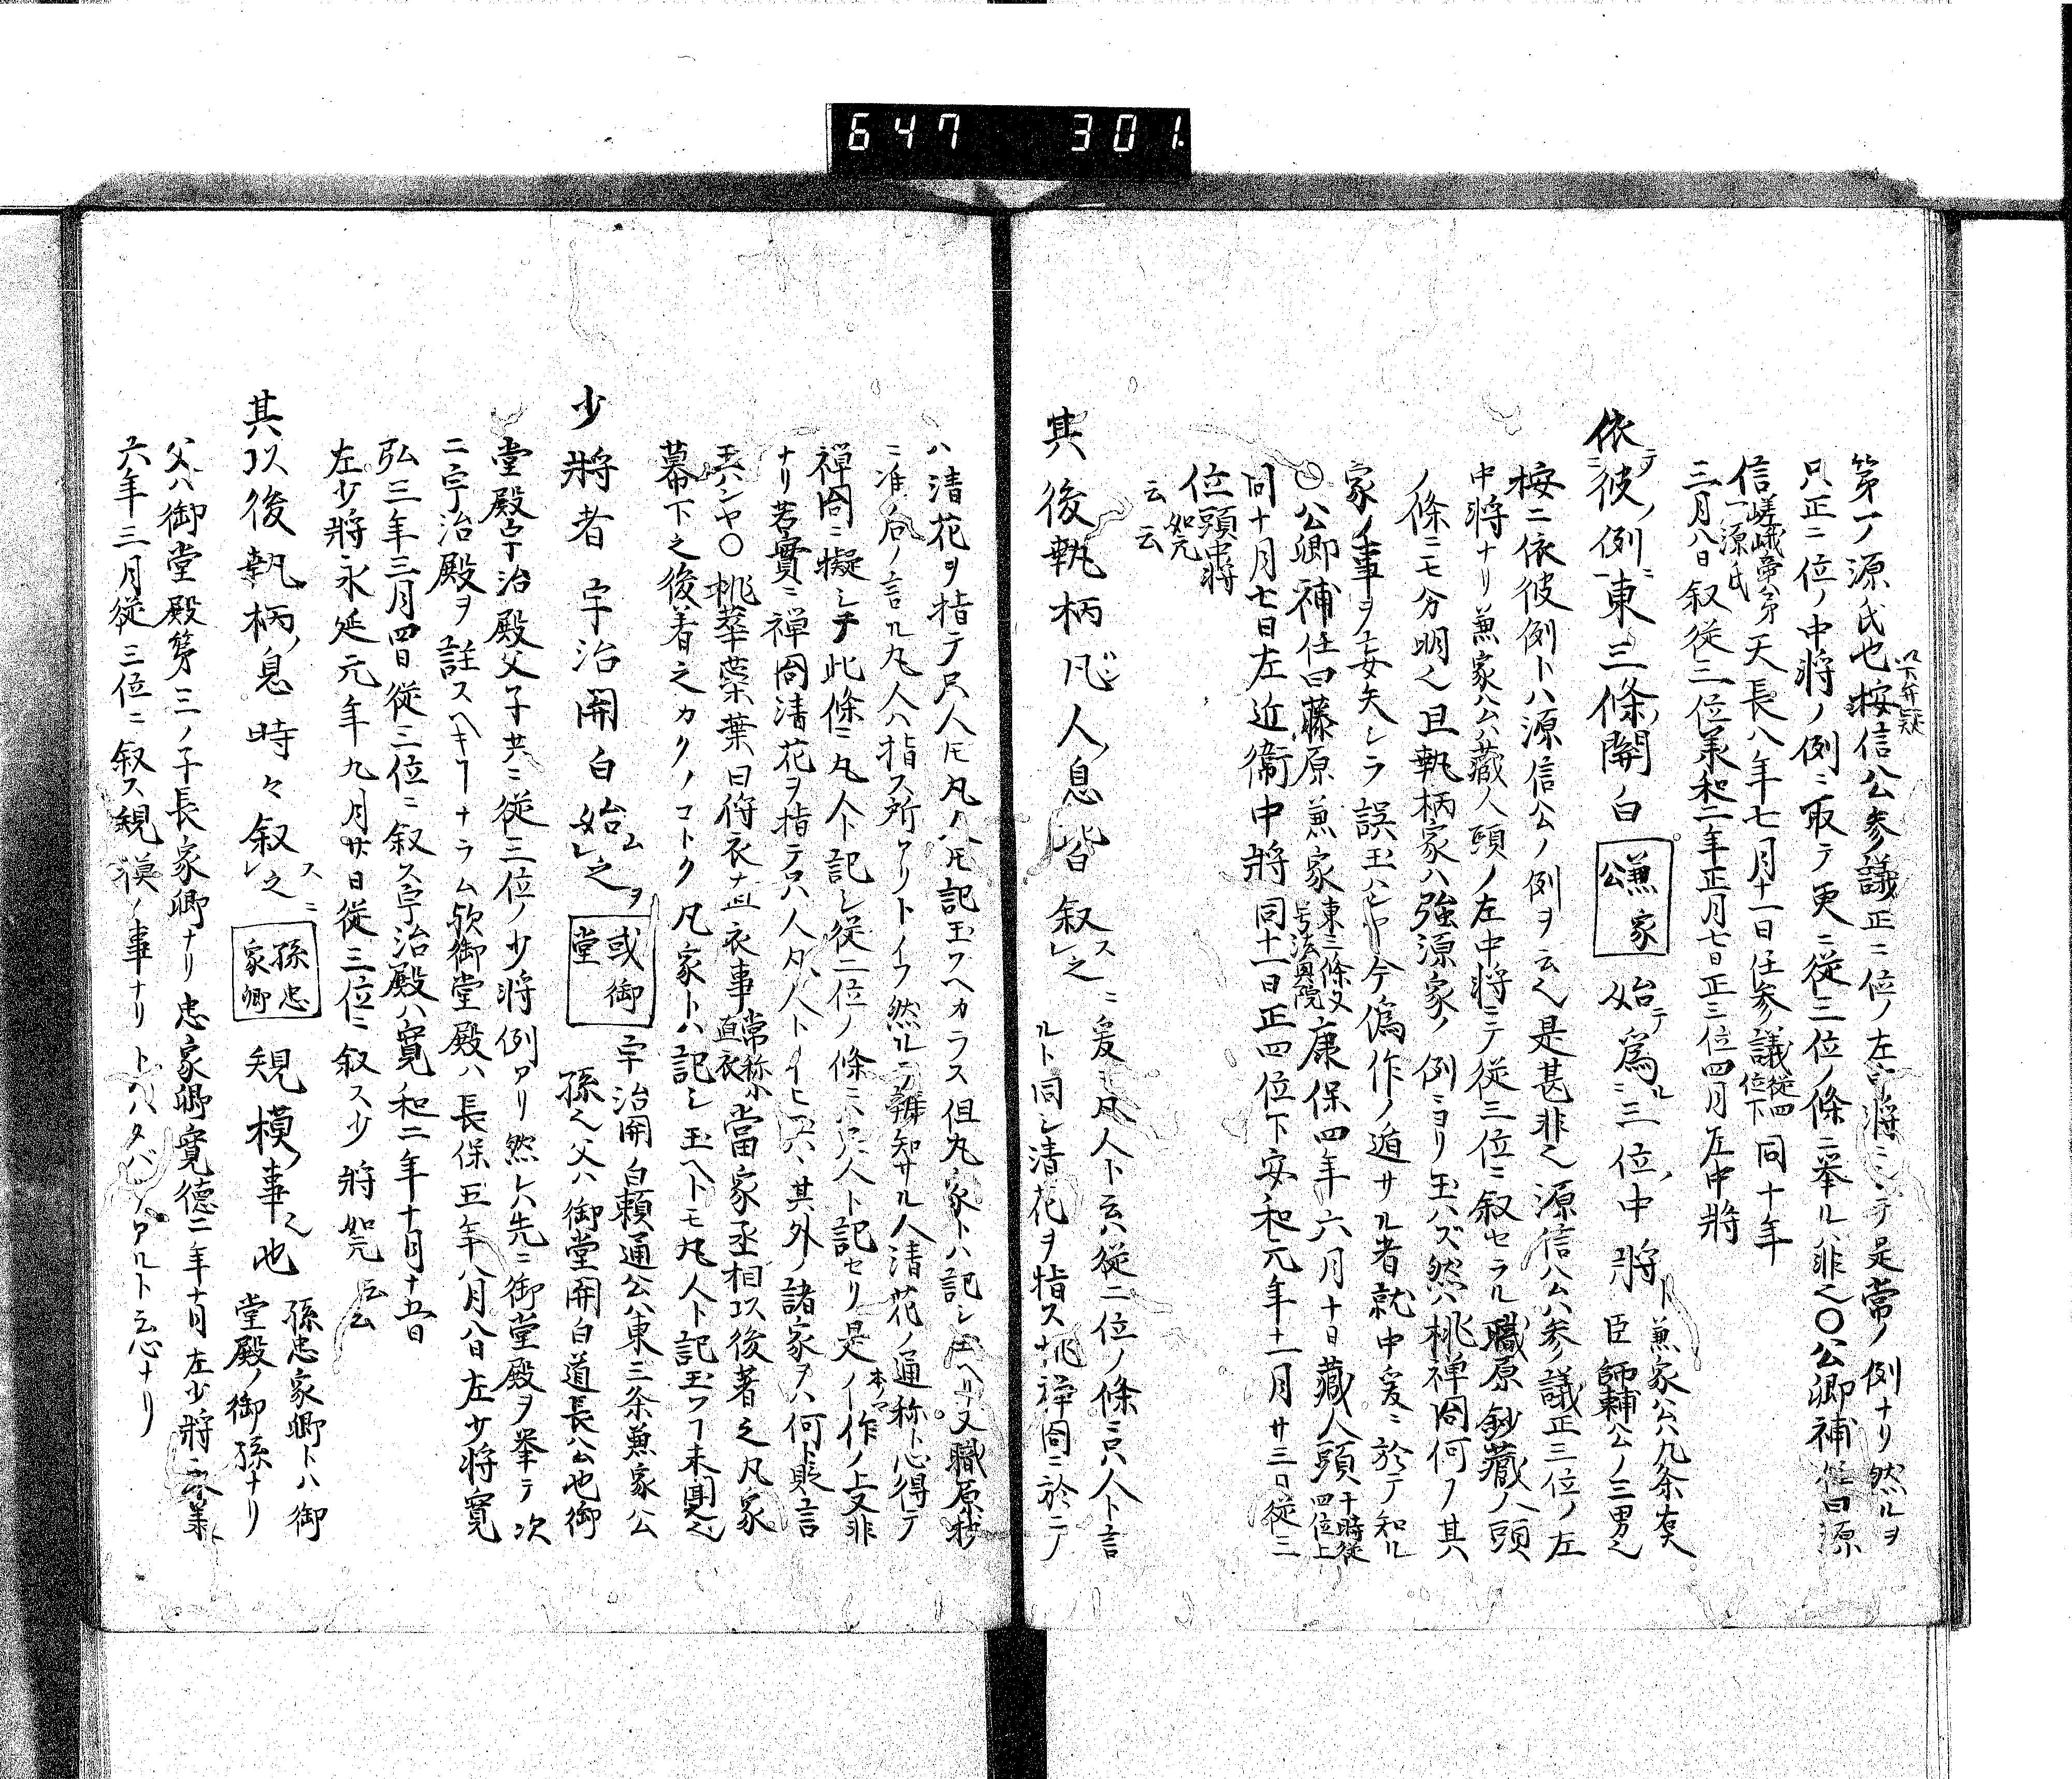 647 301
以下弁疑
第一ノ源氏也按信公参議正三位ノ左中将ニシテ是常ノ例ナリ然ルヲ
只正三位ノ中将ノ例ニ取テ更ニ従三位ノ條ニ挙ルハ非之〇公卿補任曰源
信嵯峨帝第一源氏天長八年七月十一日任参議従四位下同十年
三月八日叙従三位承和二年正月七日正三位四月左中将
依テ彼ノ例ニ東三條ノ關白兼家公始テ為ル三位ノ中将ト兼家公ハ九条右大臣師輔公ノ三男之
按ニ依彼例トハ源信公ノ例ヲ云之是甚非之源信公ハ参議正三位ノ左
中将ナリ兼家公ハ蔵人頭ノ左中将ニテ従三位ニ叙セラル職原鈔蔵人頭
ノ條ニモ分明之且執柄家ハ強源家ノ例ニヨリ玉ハズ然ハ桃禅閤何ノ其
家ノ事ヲ妄矢シラ誤玉ハンヤ今偽作ノ遁サル者就中爰ニ於テ知ル
〇公卿補任曰藤原兼家東三條又号法興院康保四年六月十日蔵人頭于時従四位上
同十月七日左近衛中将同十一日正四位下安和元年十一月廿三日従三
位頭中将如元云云
其後執柄凡人ノ息皆叙ス之ニ爰ニ凡人ト云ハ従二位ノ條ニ只人ト言
ルト同シ清花ヲ指ス桃禅閤ニ於ニノ
ハ清花ヲ指テ只人氏凡人氏記玉フヘカラス但凡家トハ記シ玉ヘリ又職原抄
ニ准后ノ言ル凡人ハ指ス所アリトイフ然ルニ辨知サル人清花ノ通称ト心得テ
禅閤ニ擬シテ此條ニ凡人ト記シ従二位ノ條ニハ只人ト記セリ是ノ偽作ノ上又非
ナリ若實ニ禅閤清花ヲ指テ只人凡人トイヒ玉ハ其外ノ諸家ヲハ何ト貶言
玉ハンヤ〇桃華蘂葉曰狩衣直衣事常称小直衣當家丞相以後著之凡家
幕下之後着之カクノコトク凡家トハ記シ玉ヘトモ凡人ト記玉フ未聞之
少将者宇治關白始ム之ヲ或御堂宇治關白頼通公ハ東三条兼家公
孫之父ハ御堂關白道長公也御
堂殿宇治殿父子共ニ従三位ノ少将例アリ然レハ先ニ御堂殿ヲ挙テ次
ニ宇治殿ヲ註スヘキヿナラム歟御堂殿ハ長保五年八月八日左少将寛
弘三年三月四日従三位ニ叙ス宇治殿ハ寛和二年十月十五日
左少将永延元年九月廿日従三位ニ叙ス少将如元云云
其以後執柄ノ息時々叙ス之ニ孫忠家卿規模ノ事之也孫忠家卿トハ御
堂殿ノ御孫ナリ
父ハ御堂殿第三ノ子長家卿ナリ忠家卿寛徳二年十月左少将永承
六年三月従三位ニ叙ス規模ノ事ナリトハハタバリノアルト云心ナリ